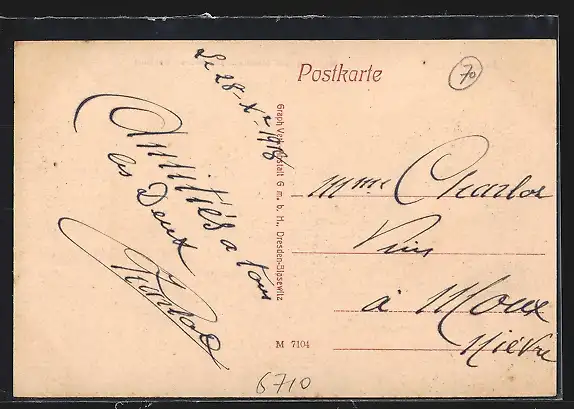 Le 28-Xre 1918
Amitiés a tous
les Deux
Charlot
Postkarte
70
Graph. Verl.-Anstalt G. m. b. H., Dresden-Blasewitz
Mme Charlot
Vins
à Moux
Nièvre
M 7104
6710